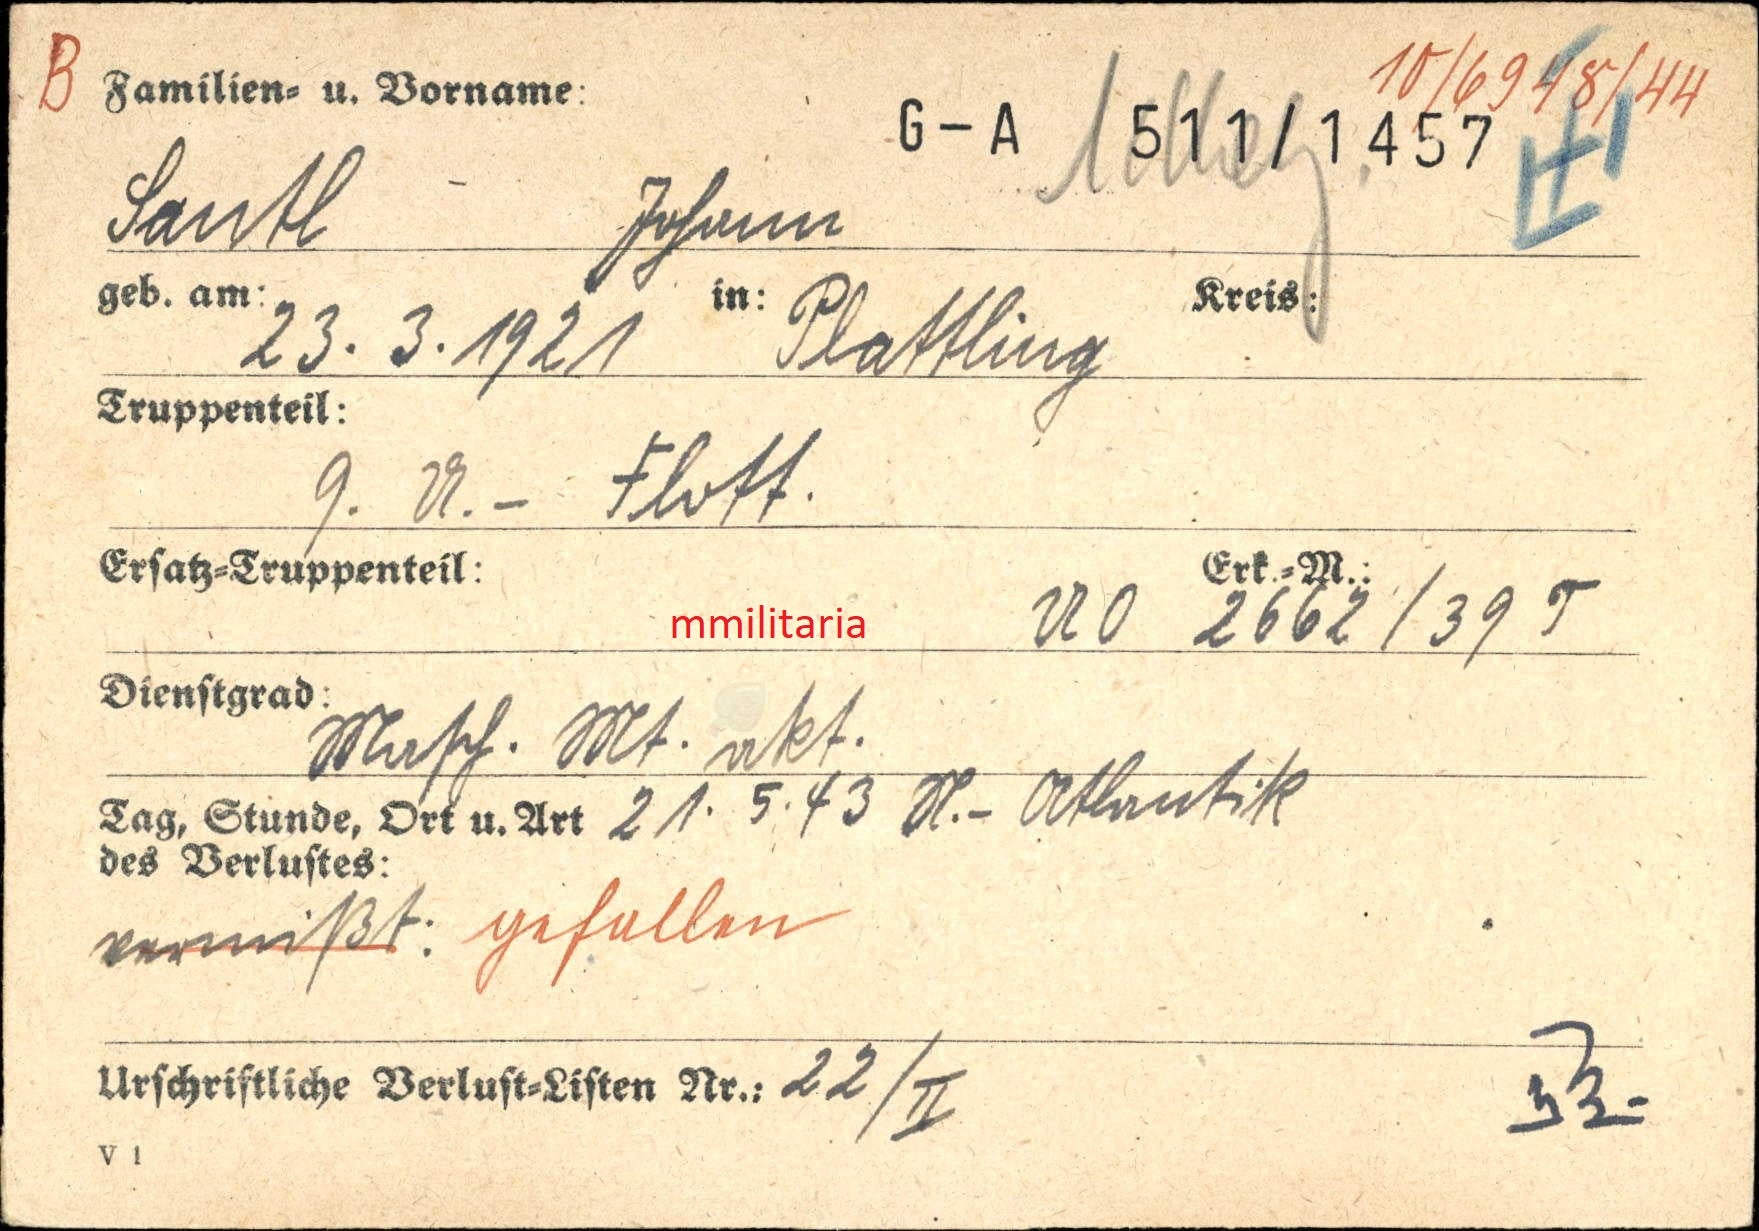 B Familien- u. Vorname:
10/6948/44
G-A 511/1457
Santl Johann
geb. am: 23.3.1921 in: Plattling Kreis:
Truppenteil:
9. U.- Flott.
Ersatz-Truppenteil: Erk.-M.:
mmilitaria
UO 2662/39 T
Dienstgrad:
Masch. Mt. akt.
Tag, Stunde, Ort u. Art 21.5.43 N.- Atlantik
des Verlustes:
vermißt: gefallen
Urschriftliche Verlust-Listen Nr.: 22/II
V 1